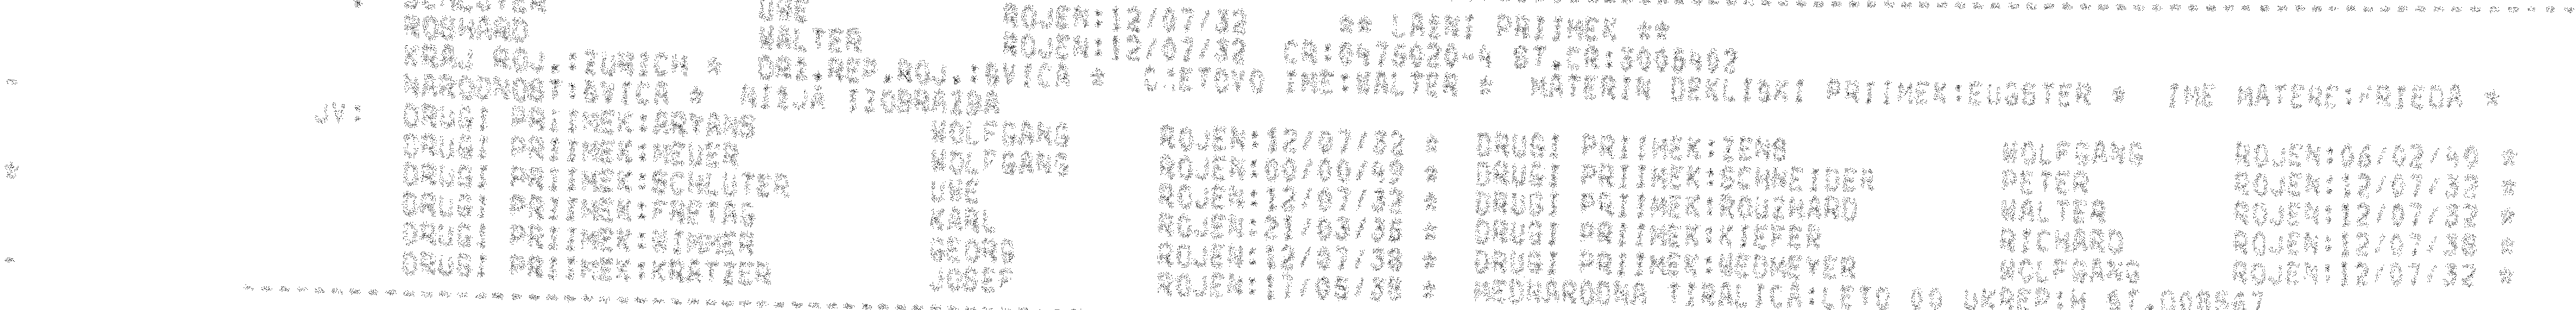 * SCHLUTER UWE ROJEN:12/07/32 ** LAZNI PRIIMEK **
ROSHARD WALTER ROJEN:12/07/32 CR:0475020-4 ST.CR:3006402
KRAJ ROJ.:ZURICH * DRZ.REP.ROJ.:SVICA * OCETOVO IME:WALTER * MATERIN DEKLISKI PRIIMEK:EUGSTER * IME MATERE:FRIEDA *
NARODNOST:SVICA * NIZJA IZOBRAZBA
JV: DRUGI PRIIMEK:ARTANG WOLFGANG ROJEN:12/07/32 * DRUGI PRIIMEK:ZENG WOLFGANG ROJEN:06/02/40 *
DRUGI PRIIMEK:MEUER WOLFGANG ROJEN:00/00/49 * DRUGI PRIIMEK:SCHNEIDER PETER ROJEN:12/07/32 *
* DRUGI PRIIMEK:SCHLUTER UWE ROJEN:12/07/32 * DRUGI PRIIMEK:ROUZHARD WALTER ROJEN:12/07/32 *
DRUGI PRIIMEK:FRETAG KARL ROJEN:21/03/35 * DRUGI PRIIMEK:KIEFER RICHARD ROJEN:12/07/38 *
DRUGI PRIIMEK:WIMMER GEORG ROJEN:12/07/38 * DRUGI PRIIMEK:WEDMEYER WOLFGANG ROJEN:12/07/32 *
DRUGI PRIIMEK:KRATZER JOSEF ROJEN:17/05/38 * MEDNARODNA TIRALICA:LETO 00 UKREP:H ST.000567